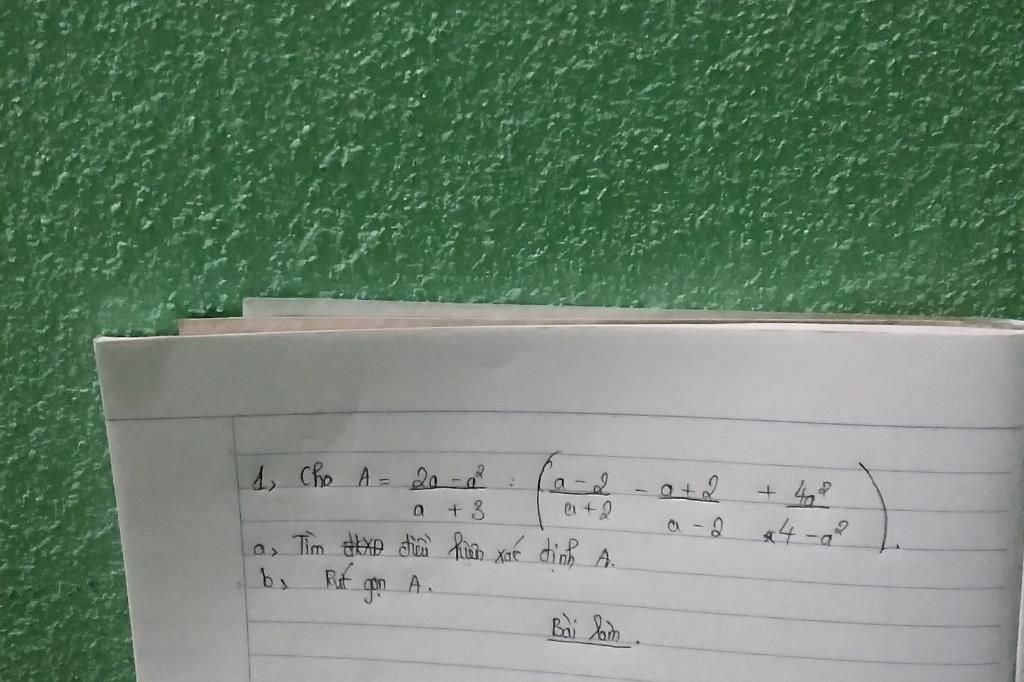 1, Cho A = (2a - a²)/(a + 3) : ((a - 2)/(a + 2) - (a + 2)/(a - 2) + 4a²/(4 - a²)).
a, Tìm điều kiện xác định A.
b, Rút gọn A.
Bài làm.